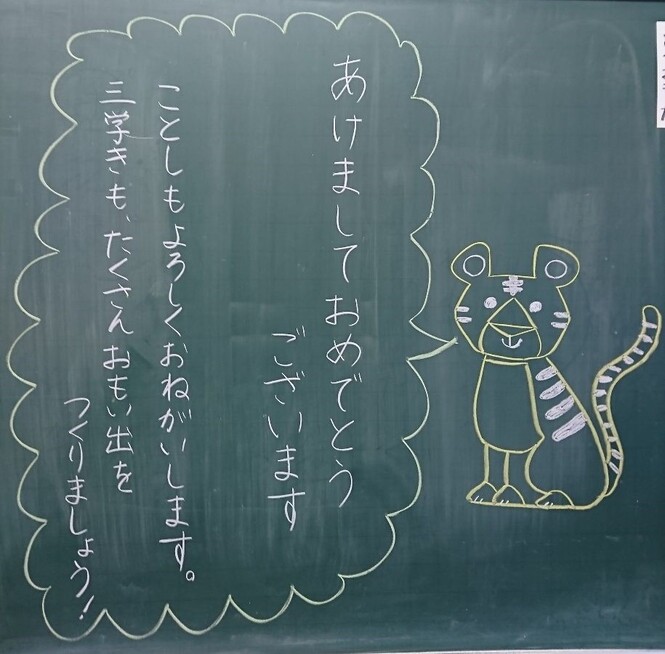 あけましておめでとう
ございます
ことしもよろしくおねがいします。
三学きも、たくさんおもい出を
つくりましょう!